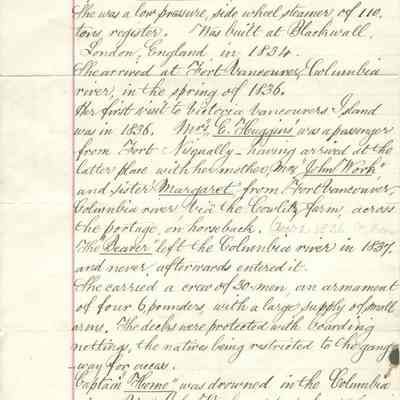 She was a low pressure, side wheel steamer of 110
tons register. Was built at Blackwall,
London, England in 1834.
She arrived at Fort Vancouver, Columbia
river, in the spring of 1836.
Her first visit to Victoria Vancouvers Island
was in 1836. Mrs. E. Huggins was a passenger
from Fort Nisqually - having arrived at the
latter place with her mother, Mrs "John Work",
and sister Margaret from Fort Vancouver,
Columbia river, via the Cowlitz farm, across
the portage, on horseback.
The "Beaver" left the Columbia river in 1837.
and never, afterwards entered it.
She carried a crew of 30 men, an armament
of four 6 pounders, with a large supply of small
arms. The decks were protected with boarding
nettings, the natives being restricted to the gang-
way for access.
Captain "Home" was drowned in the Columbia